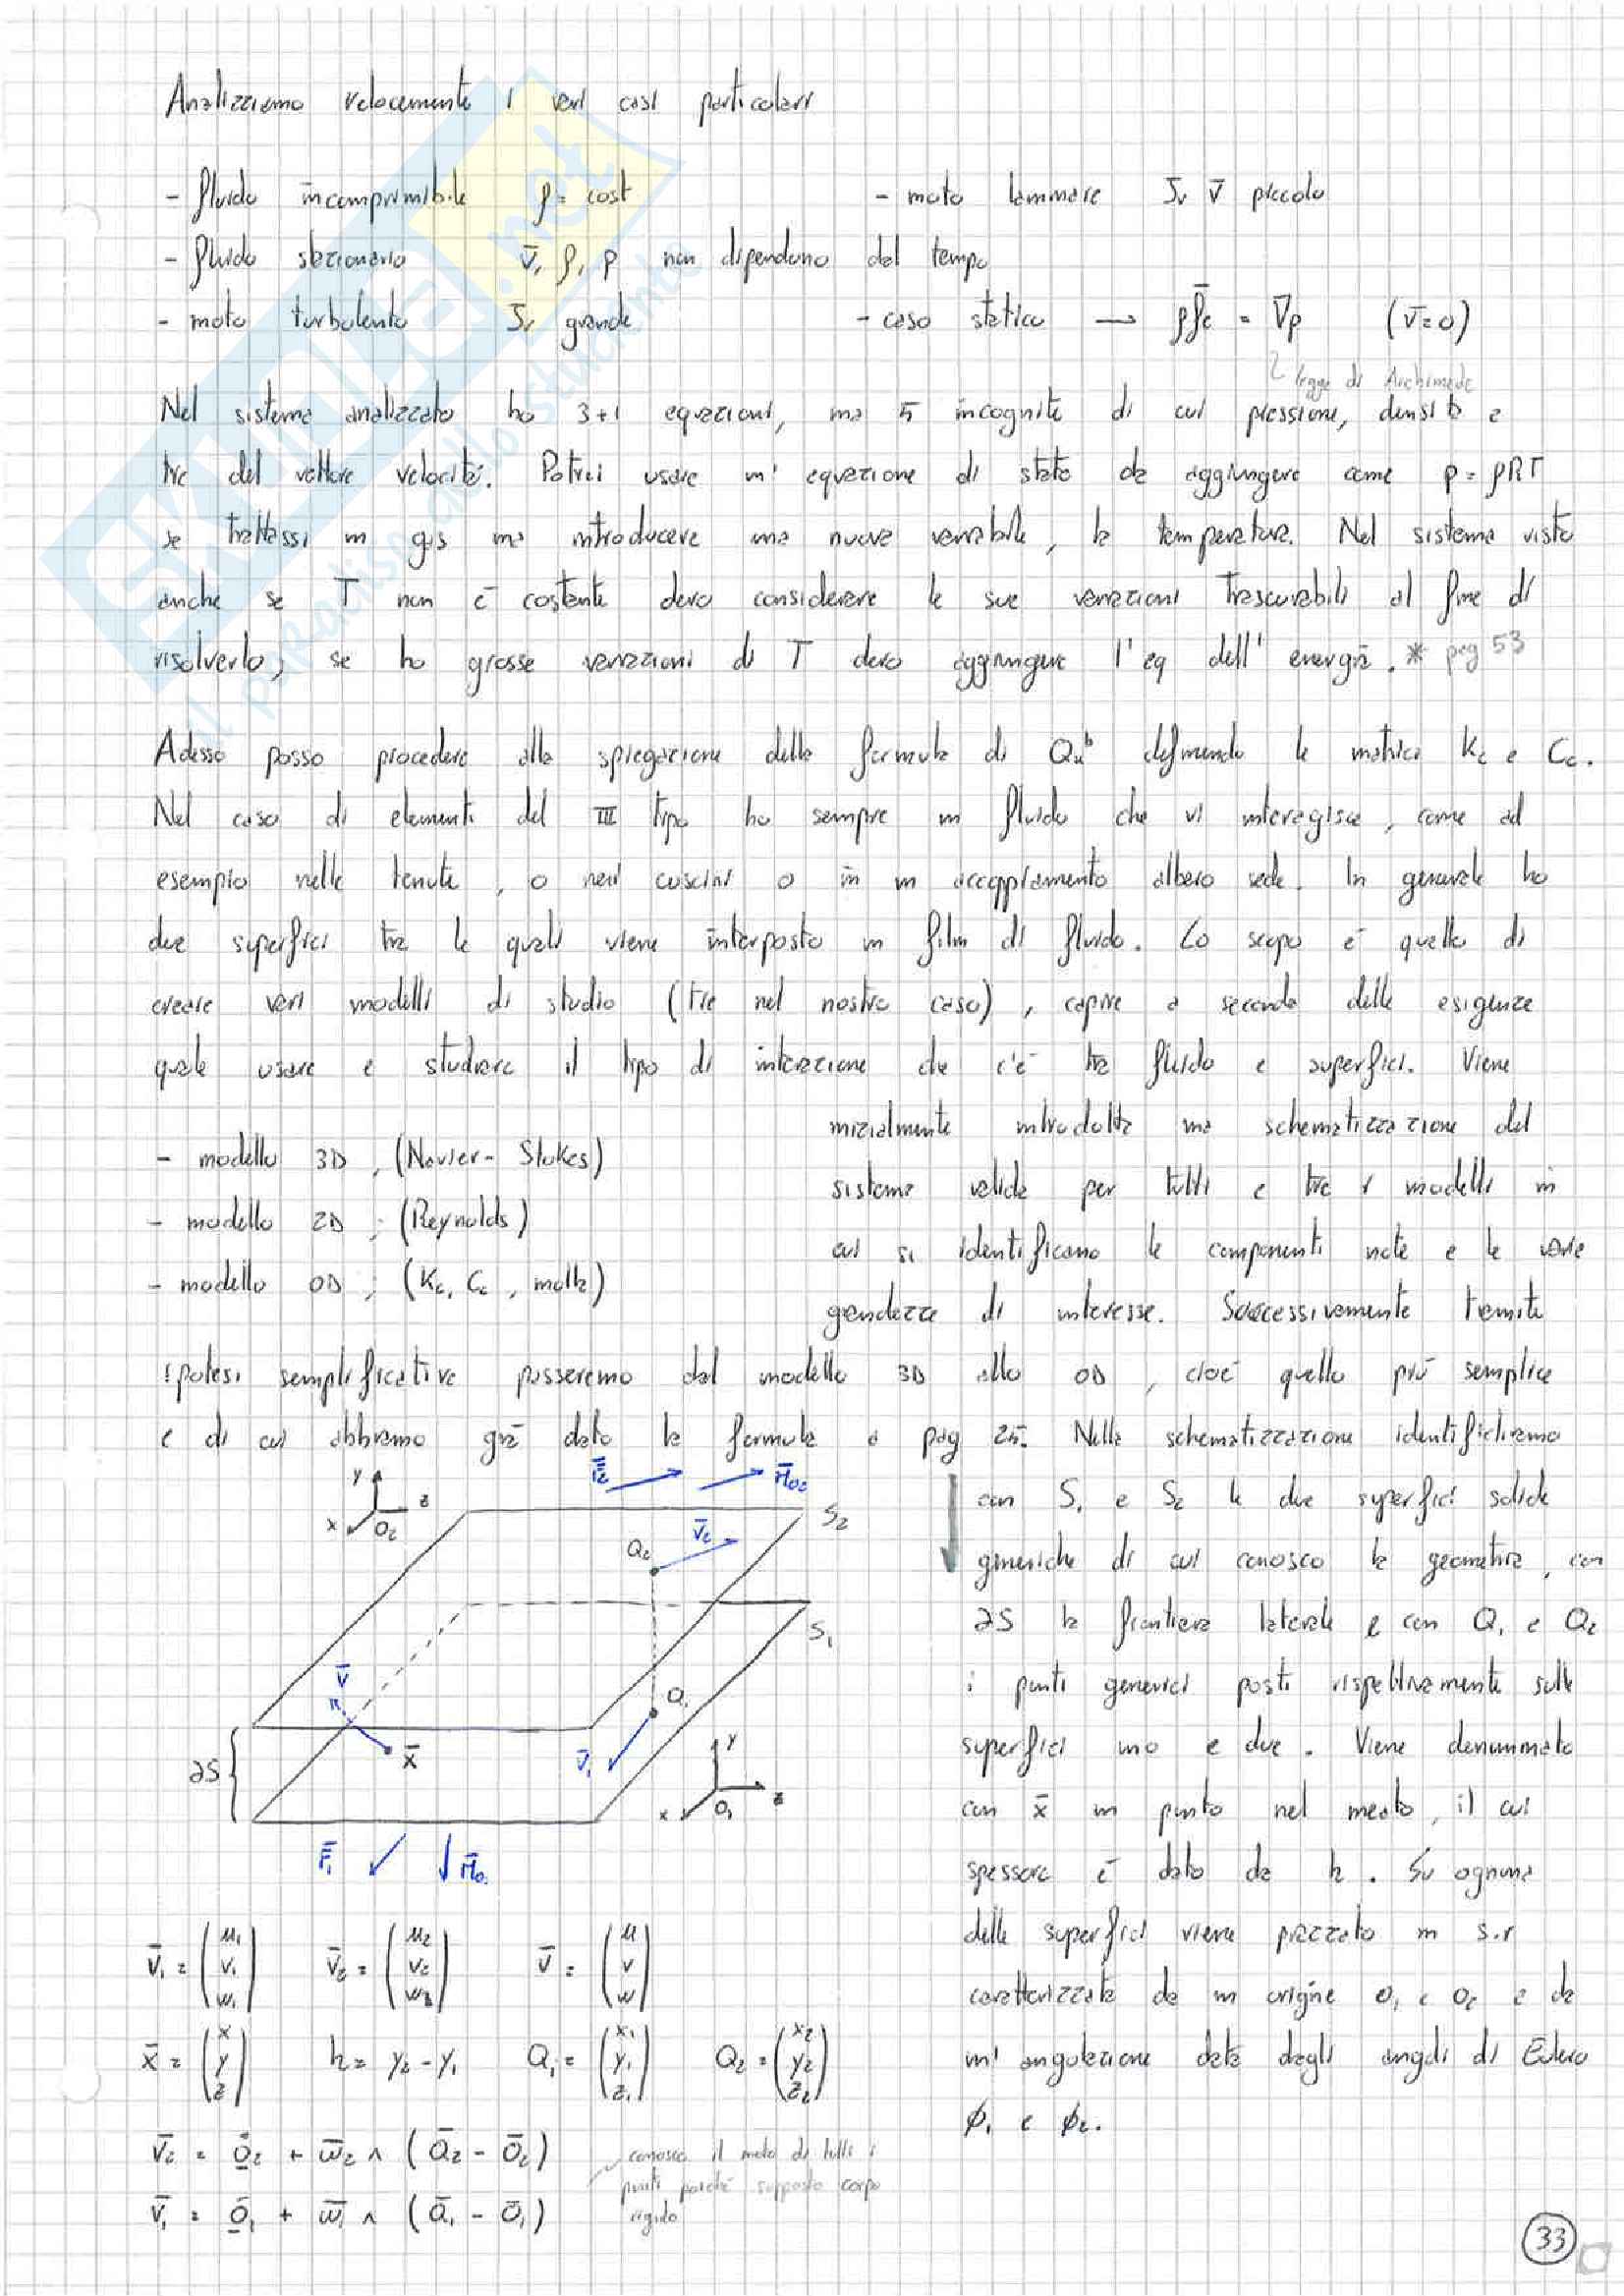 Analizziamo velocemente i vari casi particolari
- fluido incomprimibile ρ = cost
- moto laminare Su v̄ piccolo
- fluido stazionario v̄, ρ, p non dipendono dal tempo
- moto turbolento Su grande
- caso statico → ρf̄c = ∇p (v̄=0)
legge di Archimede
Nel sistema analizzato ho 3+1 equazioni, ma 5 incognite di cui pressione, densità e
tre del vettore velocità. Potrei usare un' equazione di stato da aggiungere come p = ρRT
se trattassi un gas ma introducere una nuova variabile, la temperatura. Nel sistema visto
anche se T non è costante devo considerare le sue variazioni trascurabili al fine di
risolverlo; se ho grosse variazioni di T devo aggiungere l'eq dell' energia. * pag 53
Adesso posso procedere alla spiegazione della formula di Qᵤᵇ definendo le matrici Kc e Cc.
Nel caso di elementi del III tipo ho sempre un fluido che vi interagisce, come ad
esempio nelle tenute, o nei cuscini o in un accoppiamento albero sede. In generale ho
due superfici tra le quali viene interposto un film di fluido. Lo scopo è quello di
creare vari modelli di studio (tre nel nostro caso), capire a seconda delle esigenze
quale usare e studiare il tipo di interazione che c'è tra fluido e superfici. Viene
inizialmente introdotta una schematizzazione del
- modello 3D ; (Navier-Stokes)
sistema valida per tutti e tre i modelli in
- modello 2D ; (Reynolds)
cui si identificano le componenti note e le varie
- modello 0D ; (Kc, Cc, molle)
grandezze di interesse. Successivamente tramite
ipotesi semplificative passeremo dal modello 3D allo 0D, cioè quello più semplice
e di cui abbiamo già dato la formula a pag 25. Nella schematizzazione identifichiamo
con S₁ e S₂ le due superfici solide
generiche di cui conosco la geometria, con
∂S la frontiera laterale e con Q₁ e Q₂
i punti generici posti rispettivamente sulle
superfici uno e due. Viene denominato
con x̄ un punto nel meato, il cui
spessore è dato da h. Su ognuna
delle superfici viene piazzato un s.r
caratterizzato da un origine O₁ e O₂ e da
un' angolazione data dagli angoli di Eulero
ϕ₁ e ϕ₂.
F̄₂ M̄o₂
y z x O₂
S₂
Q₂ v̄₂
S₁
v̄ x̄
Q₁ v̄₁
∂S
y z x O₁
F̄₁ M̄o₁
v̄₁ = (u₁ v₁ w₁) v̄₂ = (u₂ v₂ w₂) v̄ = (u v w)
x̄ = (x y z) h = y₂ - y₁ Q₁ = (x₁ y₁ z₁) Q₂ = (x₂ y₂ z₂)
v̄₂ = Ȯ₂ + ω̄₂ ∧ (Q̄₂ - Ō₂)
v̄₁ = Ȯ₁ + ω̄₁ ∧ (Q̄₁ - Ō₁)
conosco il moto di tutti i
punti poichè supposto corpo
rigido
33
SKUOLA.net
il paradiso dello studente